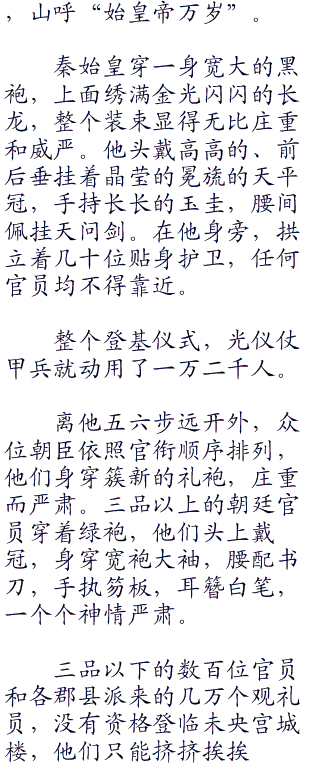 ，山呼“始皇帝万岁”。
秦始皇穿一身宽大的黑
袍，上面绣满金光闪闪的长
龙，整个装束显得无比庄重
和威严。他头戴高高的、前
后垂挂着晶莹的冕旒的天平
冠，手持长长的玉圭，腰间
佩挂天问剑。在他身旁，拱
立着几十位贴身护卫，任何
官员均不得靠近。
整个登基仪式，光仪仗
甲兵就动用了一万二千人。
离他五六步远开外，众
位朝臣依照官衔顺序排列，
他们身穿簇新的礼袍，庄重
而严肃。三品以上的朝廷官
员穿着绿袍，他们头上戴
冠，身穿宽袍大袖，腰配书
刀，手执笏板，耳簪白笔，
一个个神情严肃。
三品以下的数百位官员
和各郡县派来的几万个观礼
员，没有资格登临未央宫城
楼，他们只能挤挤挨挨